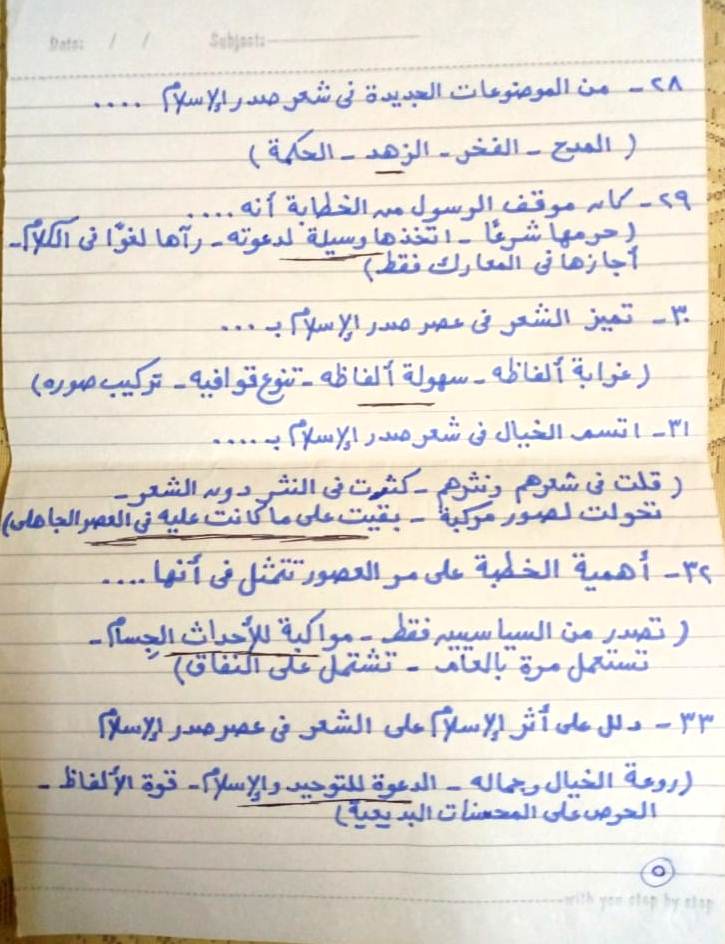 Date: / / Subject:
٢٨ - من الموضوعات الجديدة فى شعر صدر الإسلام ....
( المدح - الفخر - الزهد - الحكمة )
٢٩ - كان موقف الرسول من الخطابة أنه ....
( حرمها شرعًا - اتخذها وسيلة لدعوته - رآها لغوًا فى الكلام -
أجازها فى المعارك فقط )
٣٠ - تميز الشعر فى عصر صدر الإسلام بـ ...
( غرابة ألفاظه - سهولة ألفاظه - تنوع قوافيه - تركيب صوره )
٣١ - اتسم الخيال فى شعر صدر الإسلام بـ .....
( قلت فى شعرهم ونثرهم - كثرت فى النثر دون الشعر -
تحولت لصور مركبة - بقيت على ما كانت عليه فى العصر الجاهلى )
٣٢ - أهمية الخطبة على مر العصور تتمثل فى أنها ....
( تصدر من السياسيين فقط - مواكبة للأحداث الجِسام -
تستعمل مرة بالعام - تشتمل على النفاق )
٣٣ - دلل على أثر الإسلام على الشعر فى عصر صدر الإسلام
( روعة الخيال وجماله - الدعوة للتوحيد والإسلام - قوة الألفاظ -
الحرص على المحسنات البديعية )
٥
with you step by step